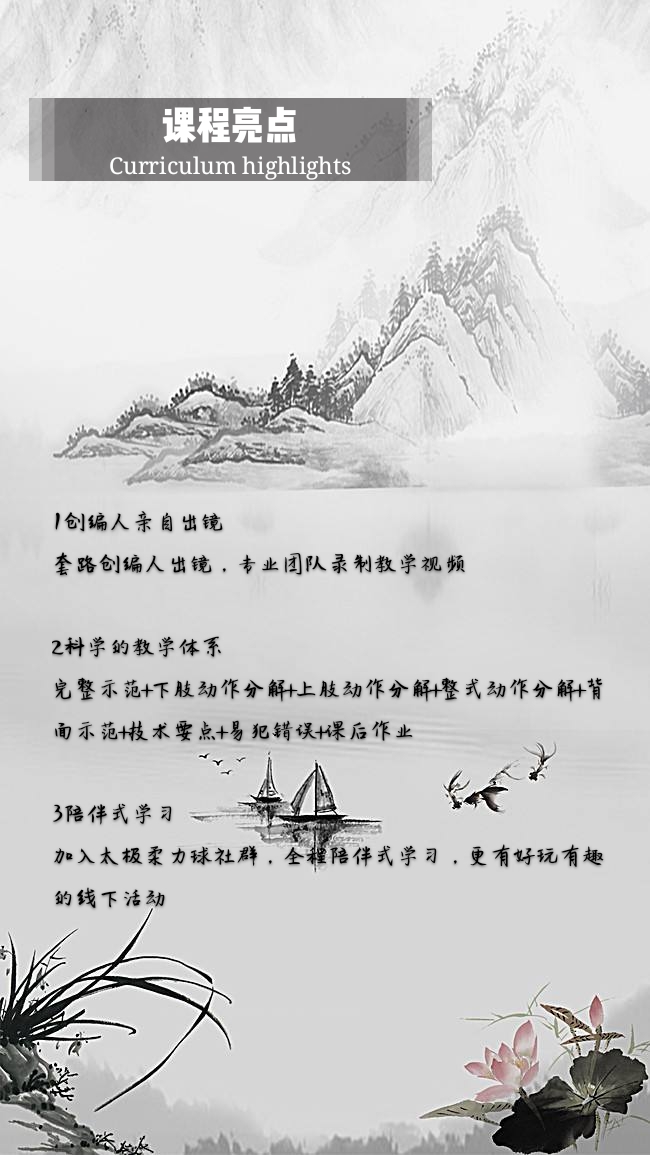 课程亮点
Curriculum highlights
1创编人亲自出镜
套路创编人出镜，专业团队录制教学视频
2科学的教学体系
完整示范+下肢动作分解+上肢动作分解+整式动作分解+背
面示范+技术要点+易犯错误+课后作业
3陪伴式学习
加入太极柔力球社群，全程陪伴式学习，更有好玩有趣
的线下活动